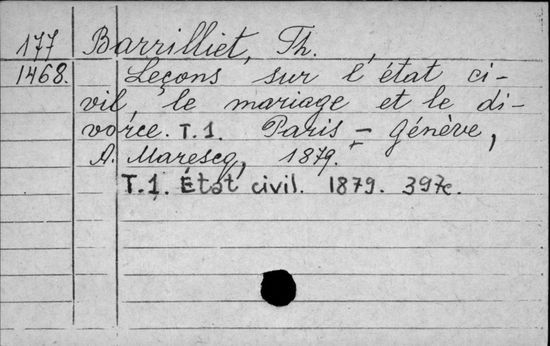 177 Barrilliet, Th.
1468. Leçons sur l'état ci-
vil, le mariage et le di-
vorce. T.1. Paris - Génève,
A. Marescq, 1879.+
T.1. État civil. 1879. 397c.